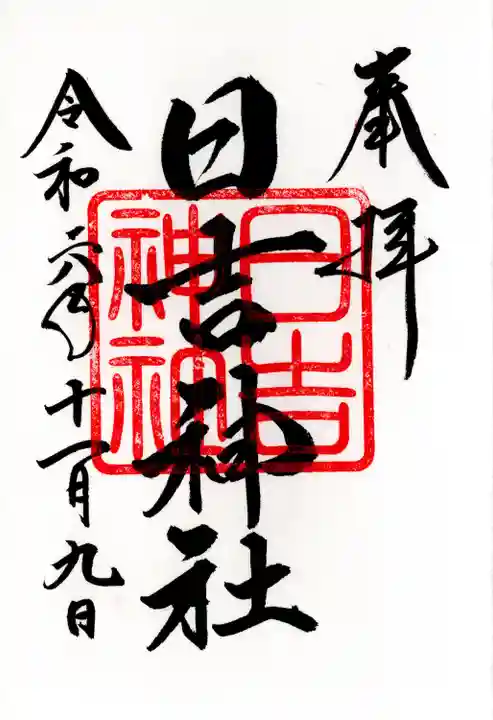 奉拝
日吉神社
日吉
神社
令和六年十一月九日